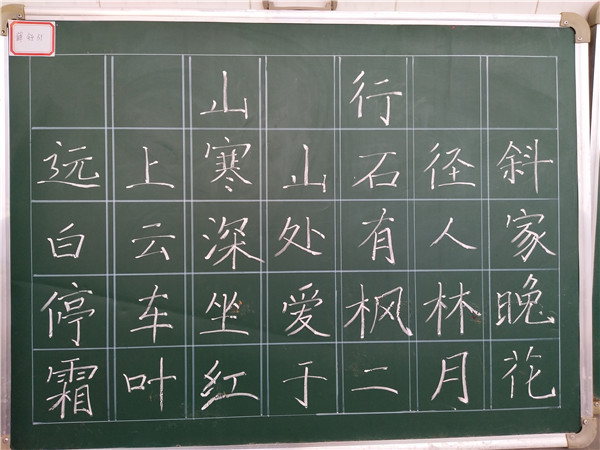 山行
远上寒山石径斜
白云深处有人家
停车坐爱枫林晚
霜叶红于二月花